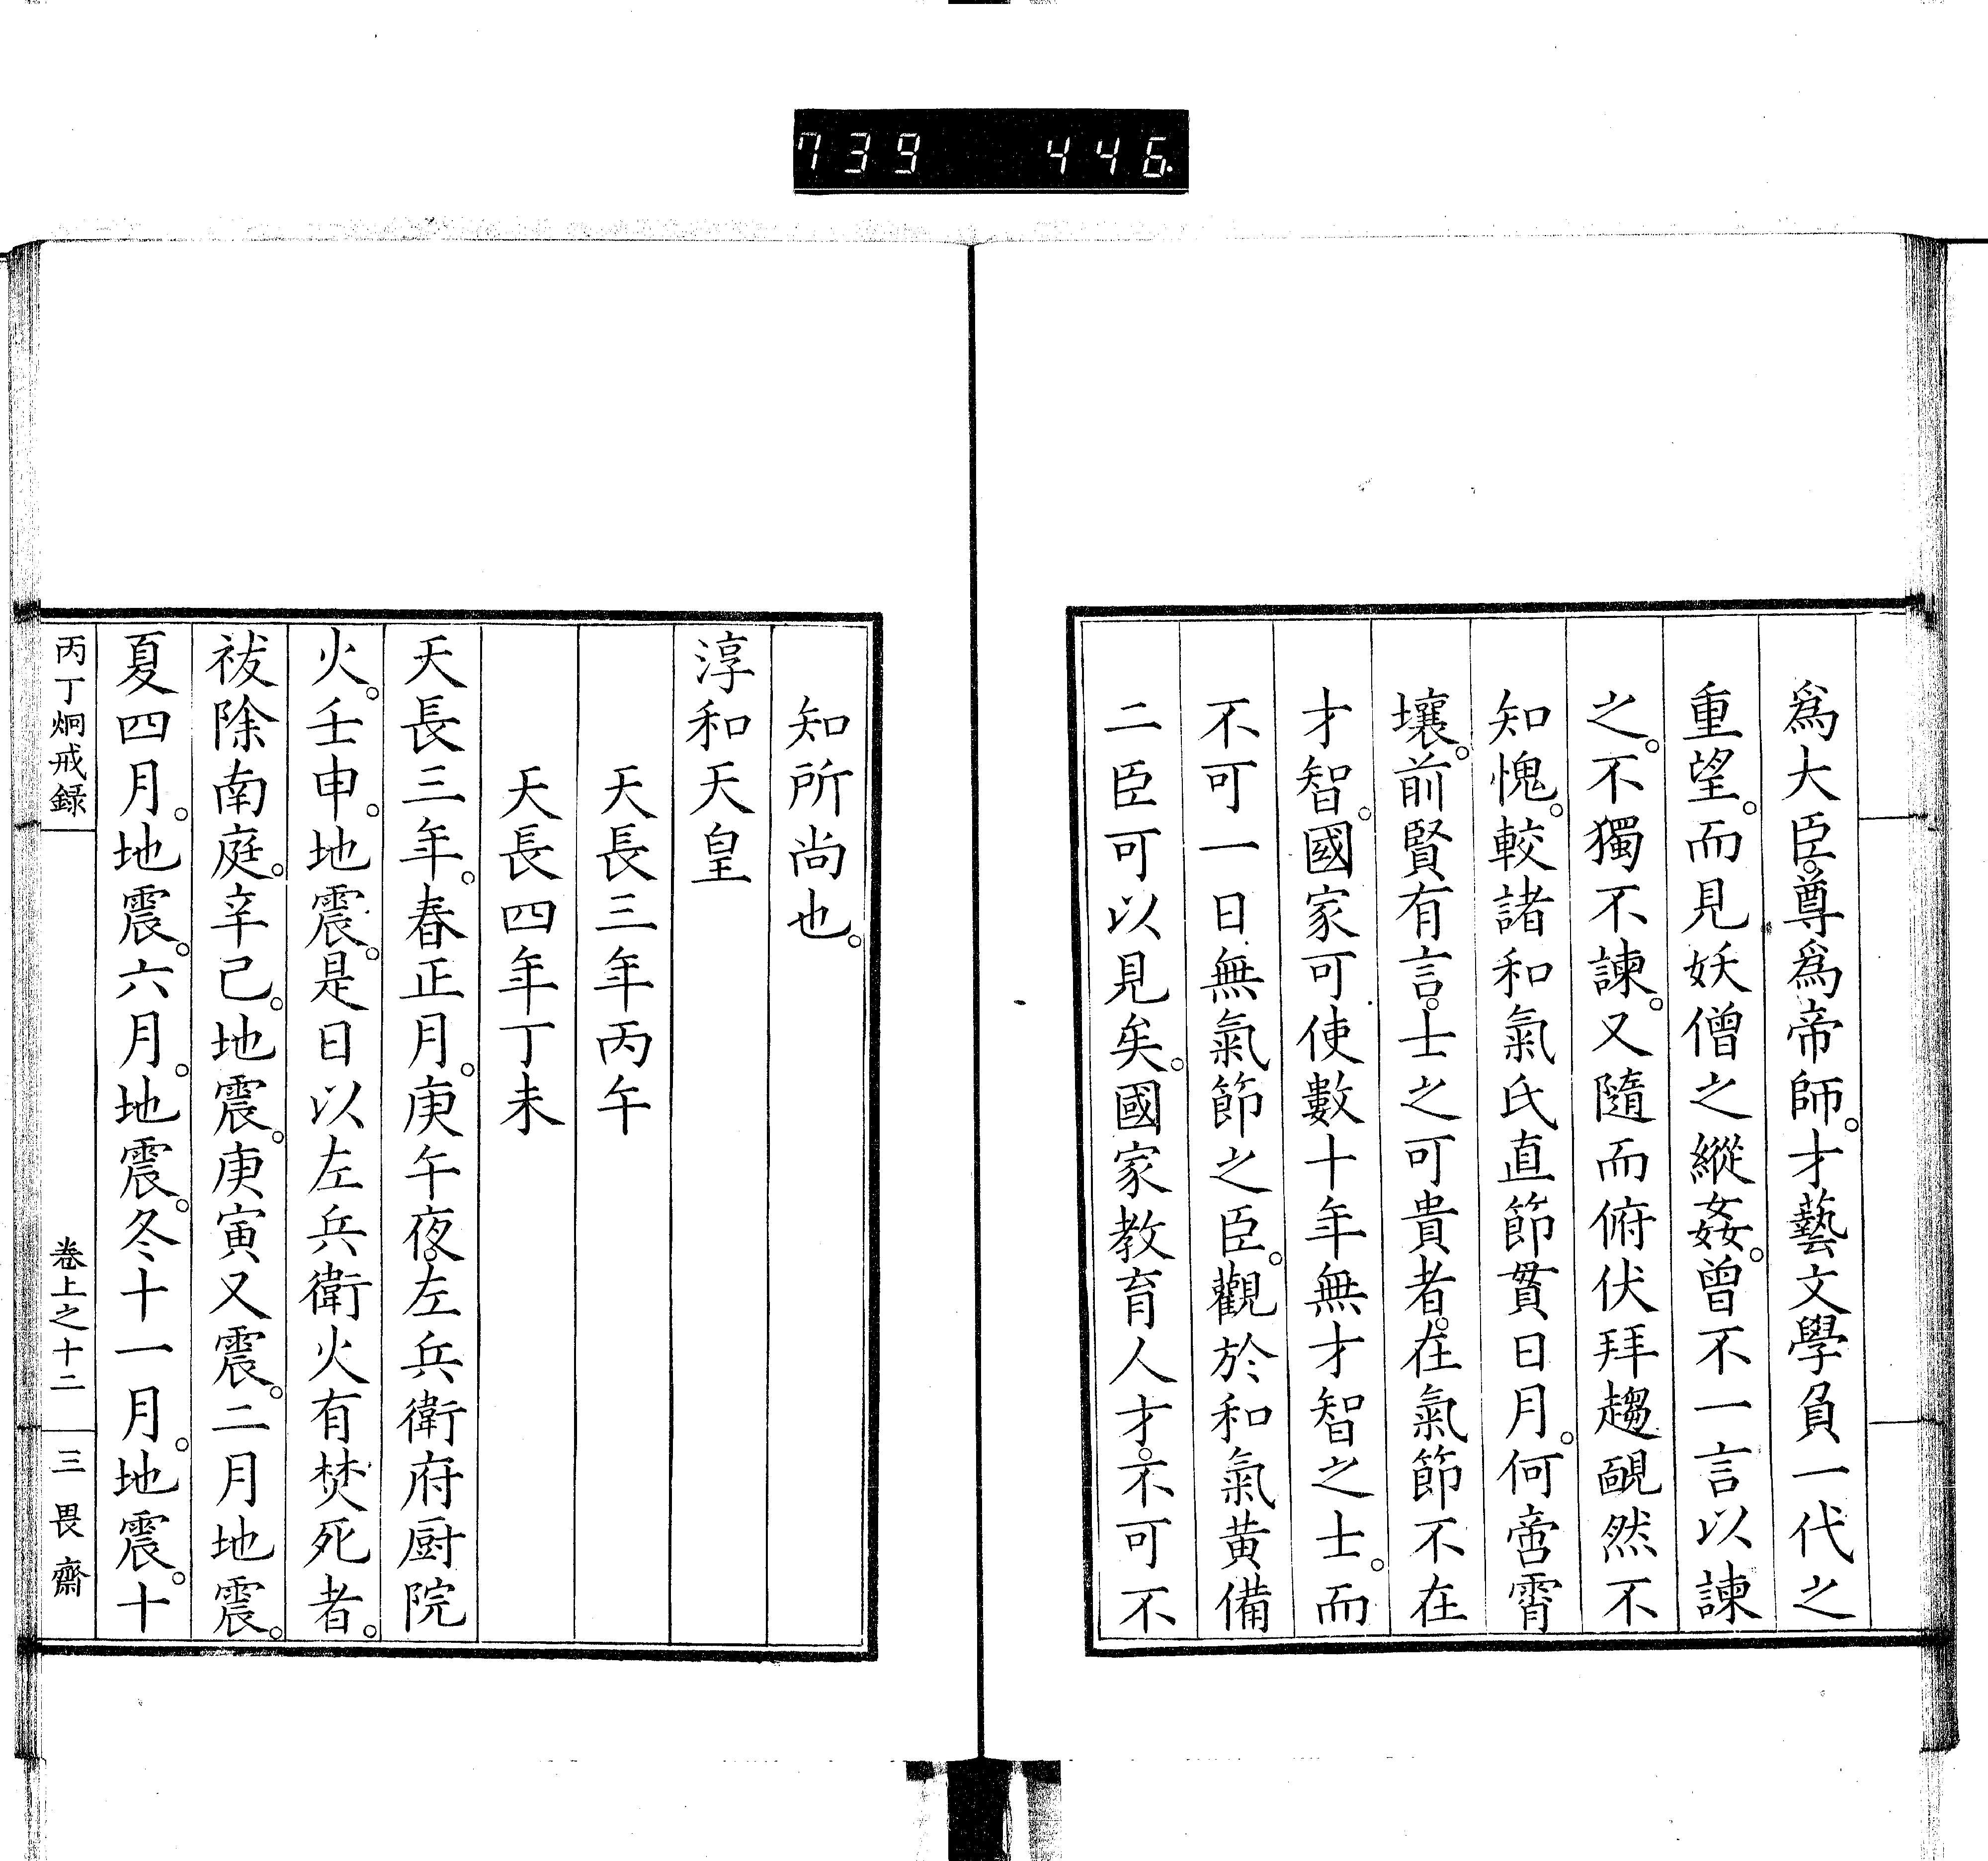 739 446.
爲大臣。尊爲帝師。才藝文學負一代之
重望。而見妖僧之縱姦。曾不一言以諫
之。不獨不諫。又隨而俯伏拜趨靦然不
知愧。較諸和氣氏直節貫日月。何啻霄
壤。前賢有言。士之可貴者。在氣節不在
才智。國家可使數十年無才智之士。而
不可一日無氣節之臣。觀於和氣黃備
二臣可以見矣。國家教育人才。不可不
知所尚也。
淳和天皇
天長三年丙午
天長四年丁未
天長三年。春正月。庚午夜。左兵衛府厨院
火。壬申。地震。是日以左兵衛火有焚死者。
祓除南庭。辛己。地震。庚寅又震。二月地震。
夏四月。地震。六月。地震。冬十一月。地震。十
丙丁烱戒録
卷上之十二
三畏齋